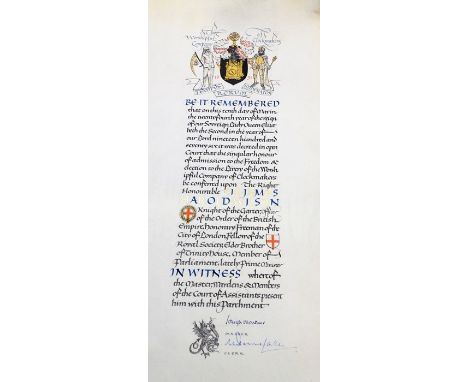 The
Worshipful
Company
of
Clockmakers
RERUM
BE IT REMEMBERED
that on this tenth day of March in
the twenty fourth year of the reign
of our Sovereign Lady Queen Eliza
beth the Second in the year of
our Lord nineteen hundred and
seventy six it was decreed in open
Court that the singular honour
of admission to the Freedom &
election to the Livery of the Worsh
ipful Company of Clockmakers
be conferred upon The Right
Honourable I J J M S
A O D J S N
Knight of the Garter, Officer
of the Order of the British
Empire, Honorary Freeman of the
City of London, Fellow of the
Royal Society, Elder Brother
of Trinity House, Member of
Parliament, lately Prime Minister
IN WITNESS whereof
the Master, Wardens & Members
of the Court of Assistants present
him with this Parchment
MASTER
CLERK